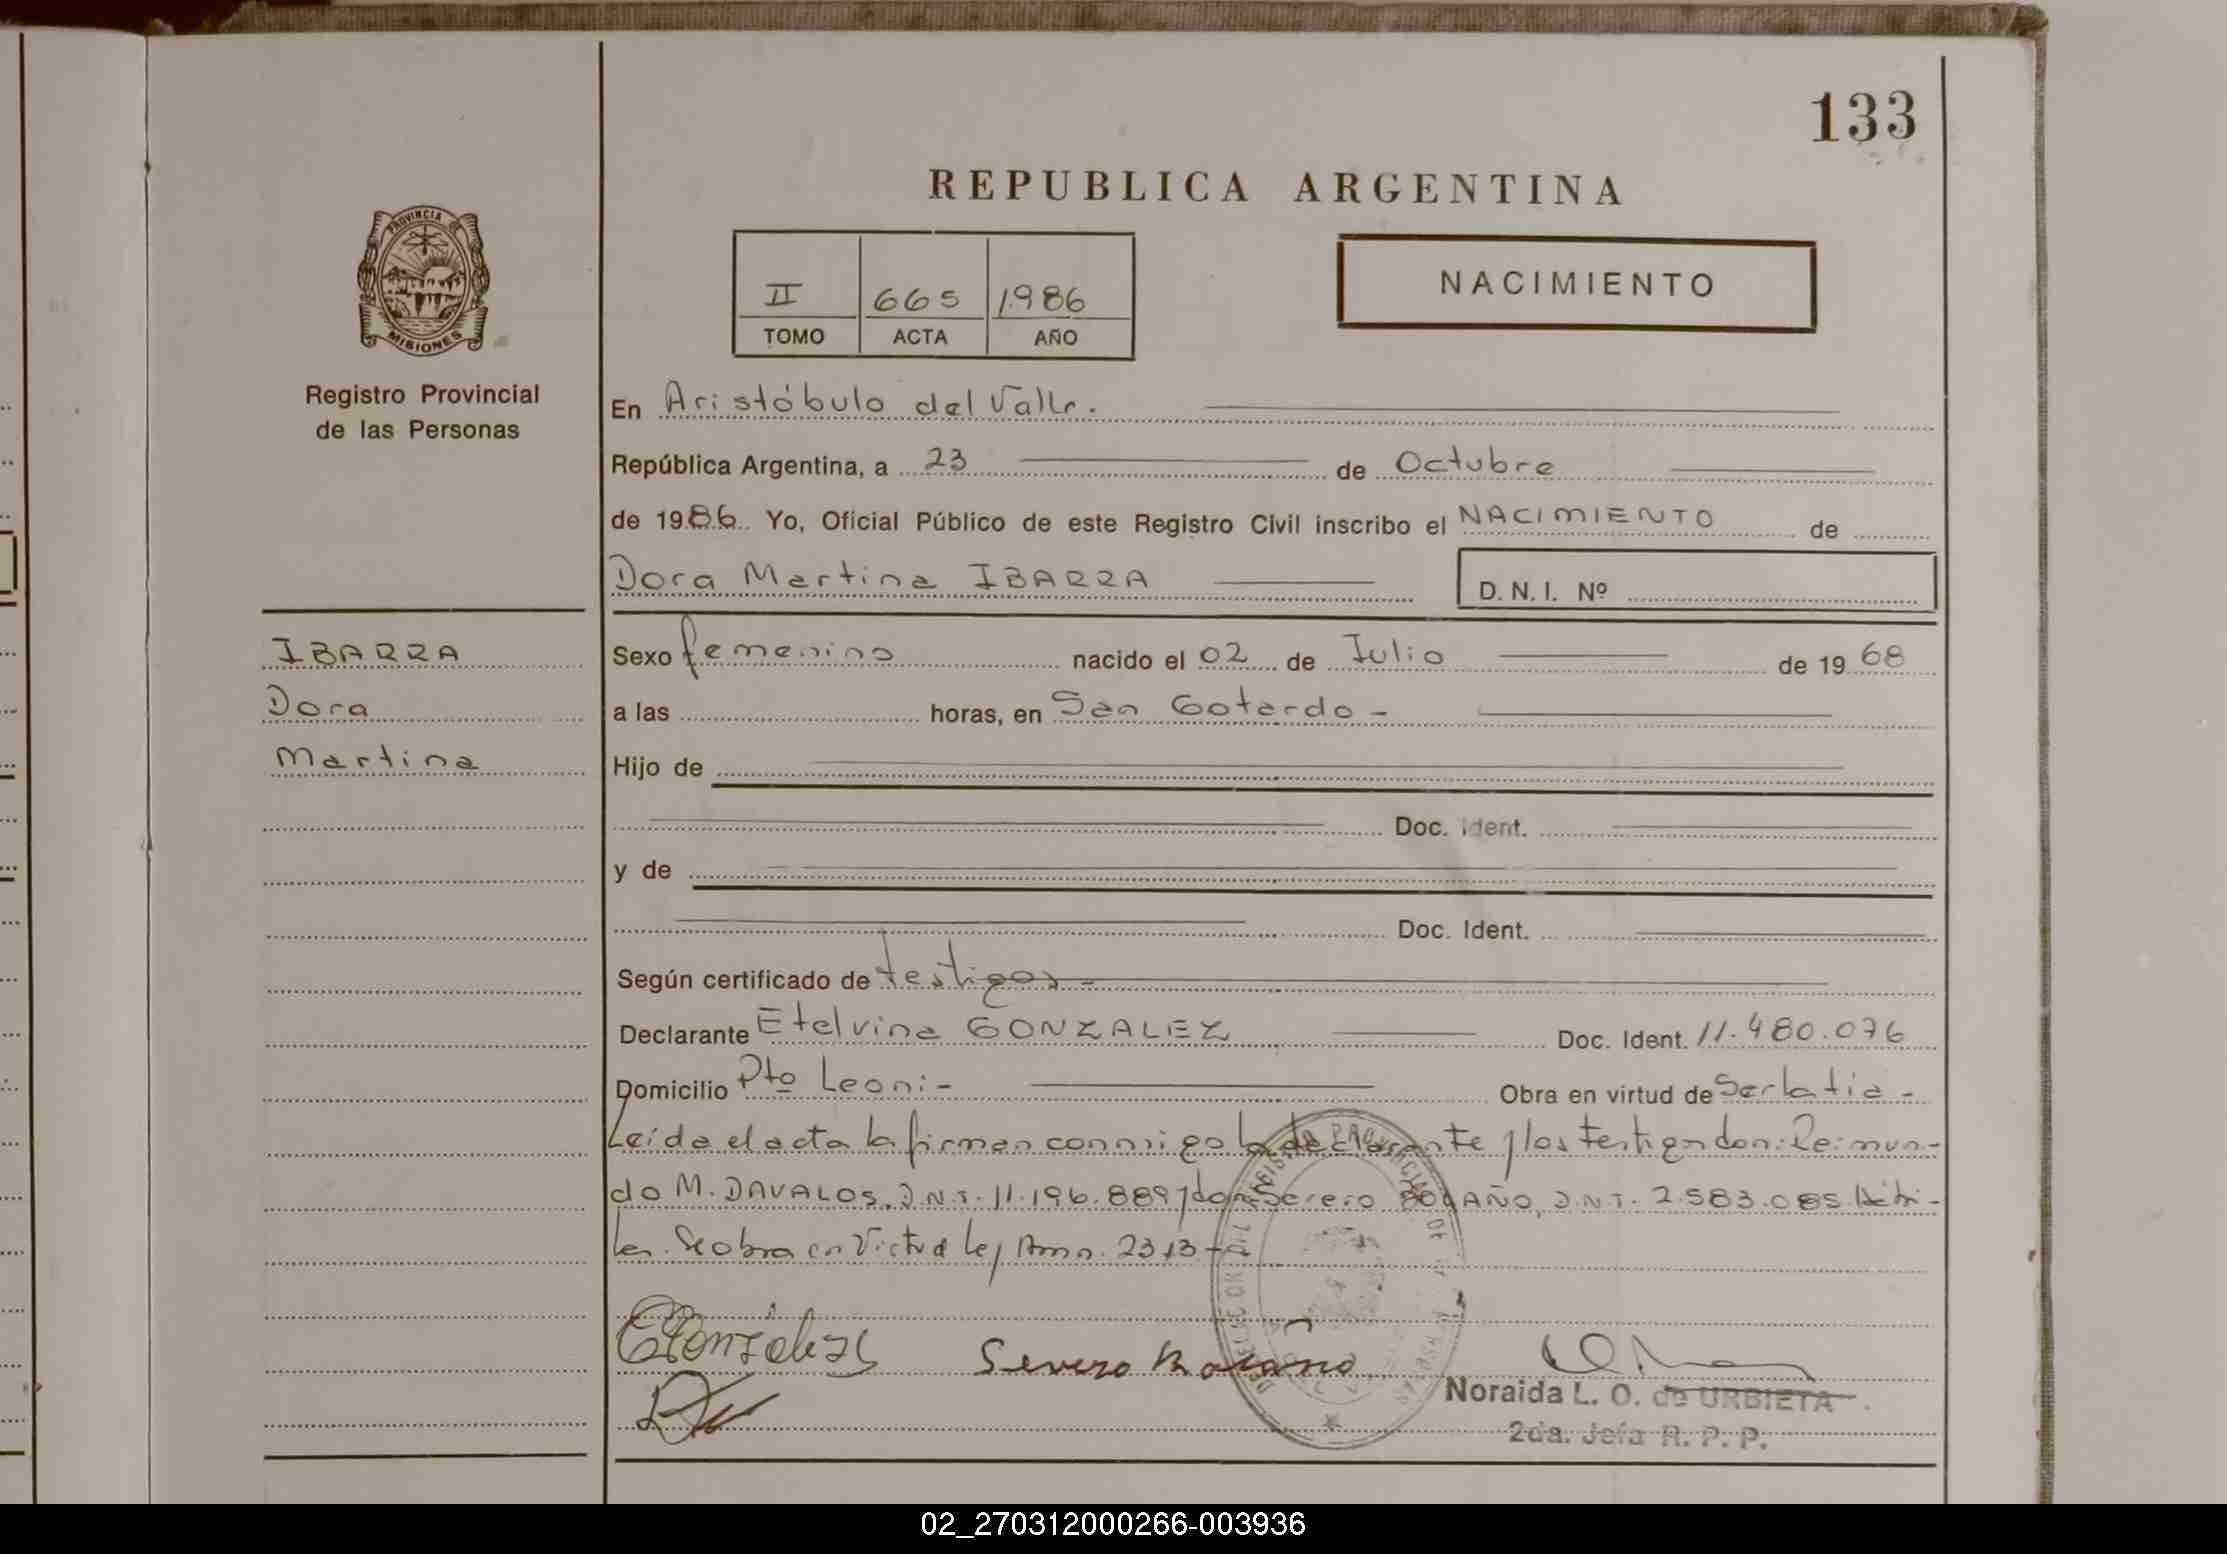 133
REPUBLICA ARGENTINA
PROVINCIA DE
MISIONES
Registro Provincial
de las Personas
II 665 1986
TOMO ACTA AÑO
NACIMIENTO
En Aristóbulo del Valle.
República Argentina, a 23 de Octubre
de 1986 Yo, Oficial Público de este Registro Civil inscribo el NACIMIENTO de
Dora Martina IBARRA D.N.I. Nº
IBARRA
Dora
Martina
Sexo femenino nacido el 02 de Julio de 1968
a las horas, en San Gotardo -
Hijo de
Doc. Ident.
y de
Doc. Ident.
Según certificado de testigos -
Declarante Etelvina GONZALEZ Doc. Ident. 11.480.076
Domicilio Pto Leoni - Obra en virtud de
Leída el acta la firman conmigo la declarante y los testigos don: Reimun-
do M. DAVALOS, D.N.I. 11.196.889 y don Severo D.N.I. 2.583.085
Se obra en Virtud Ley 2313
EGonzalez Severo
Noraida L. O. de URBIETA
2da. Jefa R. P. P.
02_270312000266-003936